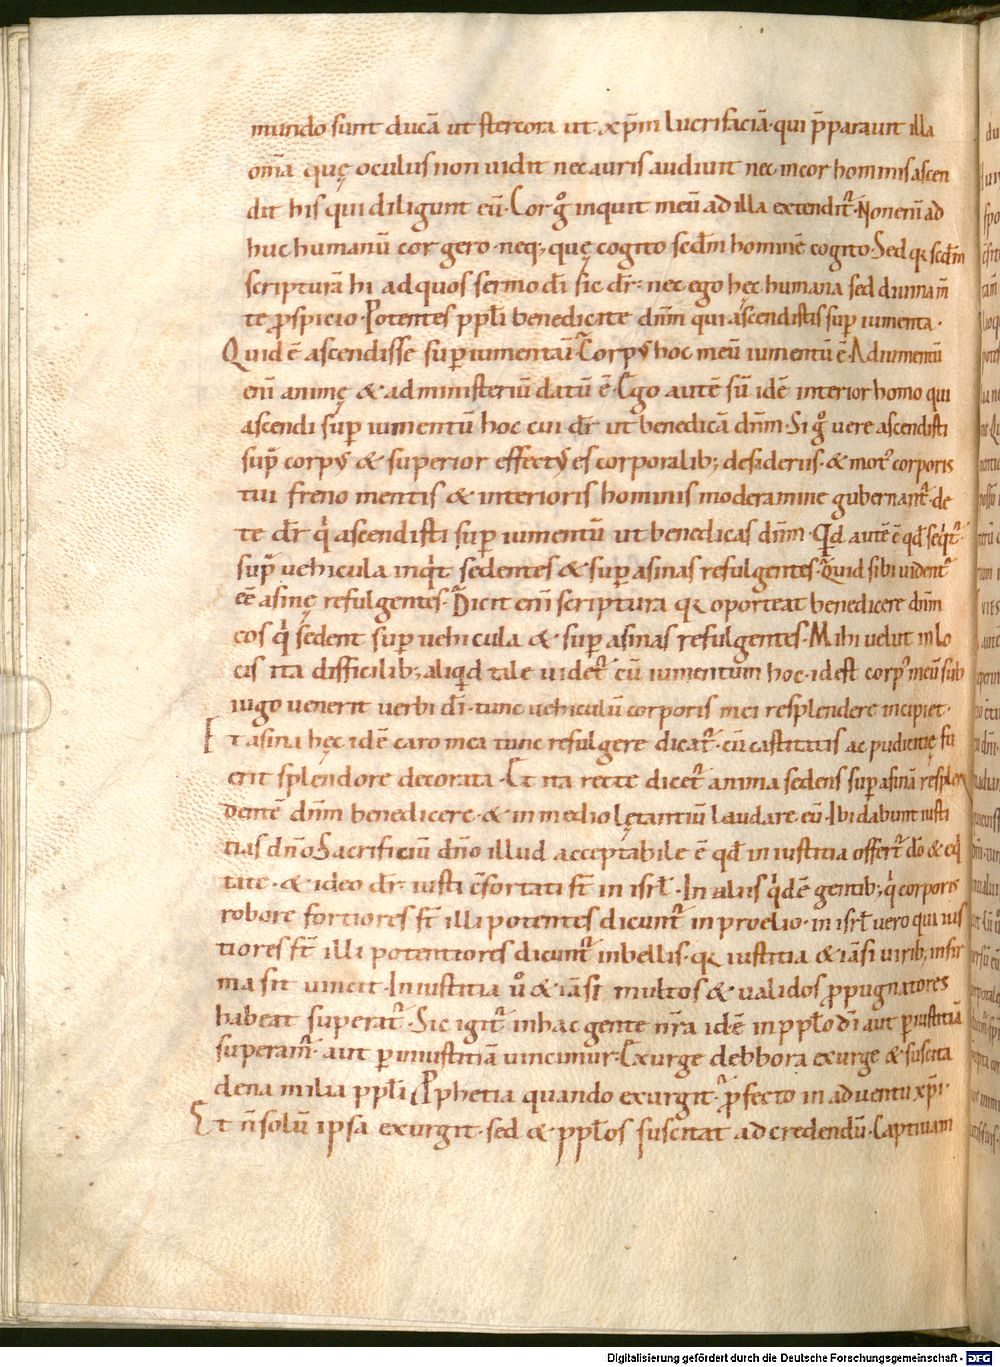 mundo sunt ducā ut stercora ut xp̄m lucrifaciā· qui p̄parauit illa
om̄a quę oculus non uidit nec auris audiuit nec in cor hominis ascen
dit his qui diligunt eū· Cor gͦ inquit meū ad illa extendit᷑· Non eni᷑ ad
huc humanū cor gero· neq; quę cogito scd̄m hominē cogito· Sed q̨ scd̄m
scripturā hi ad quos sermo dī fit dr̄· nec ego hęc humana sed diuina m̄
te ꝓspicio· Potentes ppl̄i benedicite dn̄m qui ascendistis suꝑ iumenta·
Quid ē ascendisse suꝑ iumentū· Corpꝰ hoc meū iumentū ē· Adiumentū
eni᷑ animę & ad ministeriū datū ē· Ego autē sū idē interior homo qui
ascendi suꝑ iumentū hoc cui dr̄ ut benedicā dn̄m· Si gͦ uere ascendisti
sup̄ corpꝰ & superior effectꝰ es corporalib; desideriis· & motꝰ corporis
tui freno mentis & interioris hominis moderamine gubernant᷑· de
te dr̄ qͥ ascendisti suꝑ iumentū ut benedicas dn̄m· Qͥd autē ē qd̄ seqͥt᷑·
sup̄ uehicula inqͥt sedentes & suꝑ asinas refulgentes· Quid sibi uident᷑
eē asinę refulgentes· Dicit eni᷑ scriptura q̨ oporteat benedicere dn̄m
eos qͥ sedent suꝑ uehicula & suꝑ asinas refulgentes· Mihi uelut in lo
cis ita difficilib; aliqͥd tale uidet᷑ cū iumentum hoc· id est corpꝰ meū sub
iugo uenerit uerbi dī· tunc uehiculū corporis mei resplendere incipiet·
Et asina hęc idē caro mea tunc refulgere dicat᷑· cū castitatis ac pudicitię fu
erit splendore decorata· Et ita recte dicet᷑ anima sedens suꝑ asinā resplen
dentē dn̄m benedicere· & in medio lętantiū laudare eū· Ibi dabunt iusti
tias dn̄o Sacrificiū dn̄o illud acceptabile ē qd̄ in iustitia offert᷑ dō & eqͥ
tate· & ideo dr̄· iusti c̄fortati st̄ in isrl̄· In aliis qͥdē gentib; qͥ corporis
robore fortiores st̄ illi potentes dicunt᷑ in proelio· in isrl̄ uero qui ius
tiores st̄ illi potentiores dicunt᷑ in bellis· q̨ iustitia & iāsi uirib; infir
ma sit uincit· Iniustitia uͦ & iāsi multos & ualidos ꝓpugnatores
habeat superat᷑· Sic igit᷑ in hac gente nr̄a idē in ppl̄o dī aut ꝑ iustitiā
superam᷑· aut ꝑ iniustitiā uincimur· Exurge debbora exurge & suscita
dena milia ppl̄i Prophetia quando exurgit· ꝓfecto in aduentu xp̄i·
Et n̄ solū ipsa exurgit· sed & ppl̄os suscitat ad credendū· Captiuam
Digitalisierung gefördert durch die Deutsche Forschungsgemeinschaft - DFG